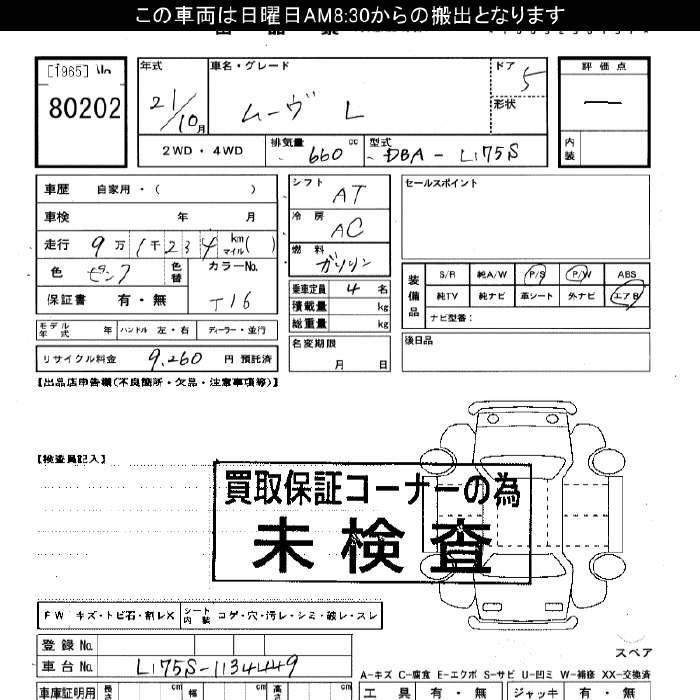 この車両は日曜日AM8:30からの搬出となります
[1965] No
80202
年式
21/10月
車名・グレード
ムーヴ L
ドア
5
形状
2WD・4WD
排気量 660 cc
型式 DBA-L175S
評価点
―
内装
車歴 自家用・( )
車検 年 月
走行 9万1千234 km マイル( )
色
色替
カラーNo.
T16
保証書 有・無
モデル年式 年 ハンドル 左・右 ディーラー・並行
リサイクル料金 9,260 円 預託済
シフト
AT
冷房
AC
燃料
ガソリン
乗車定員 4 名
積載量 kg
総重量 kg
名変期限
月 日
セールスポイント
装備品
S/R 純A/W P/S P/W ABS
純TV 純ナビ 革シート 外ナビ エアB
ナビ型番:
後日品
【出品店申告欄(不良箇所・欠品・注意事項等)】
【検査員記入】
買取保証コーナーの為
未検査
FW キズ・トビ石・割レX シート内装 コゲ・穴・汚レ・シミ・破レ・スレ
スペア
登録No.
車台No. L175S-1134449
A-キズ C-腐食 E-エクボ S-サビ U-凹ミ W-補修 XX-交換済
車庫証明用 長さ cm 幅 cm 高さ cm
工具 有・無 ジャッキ 有・無